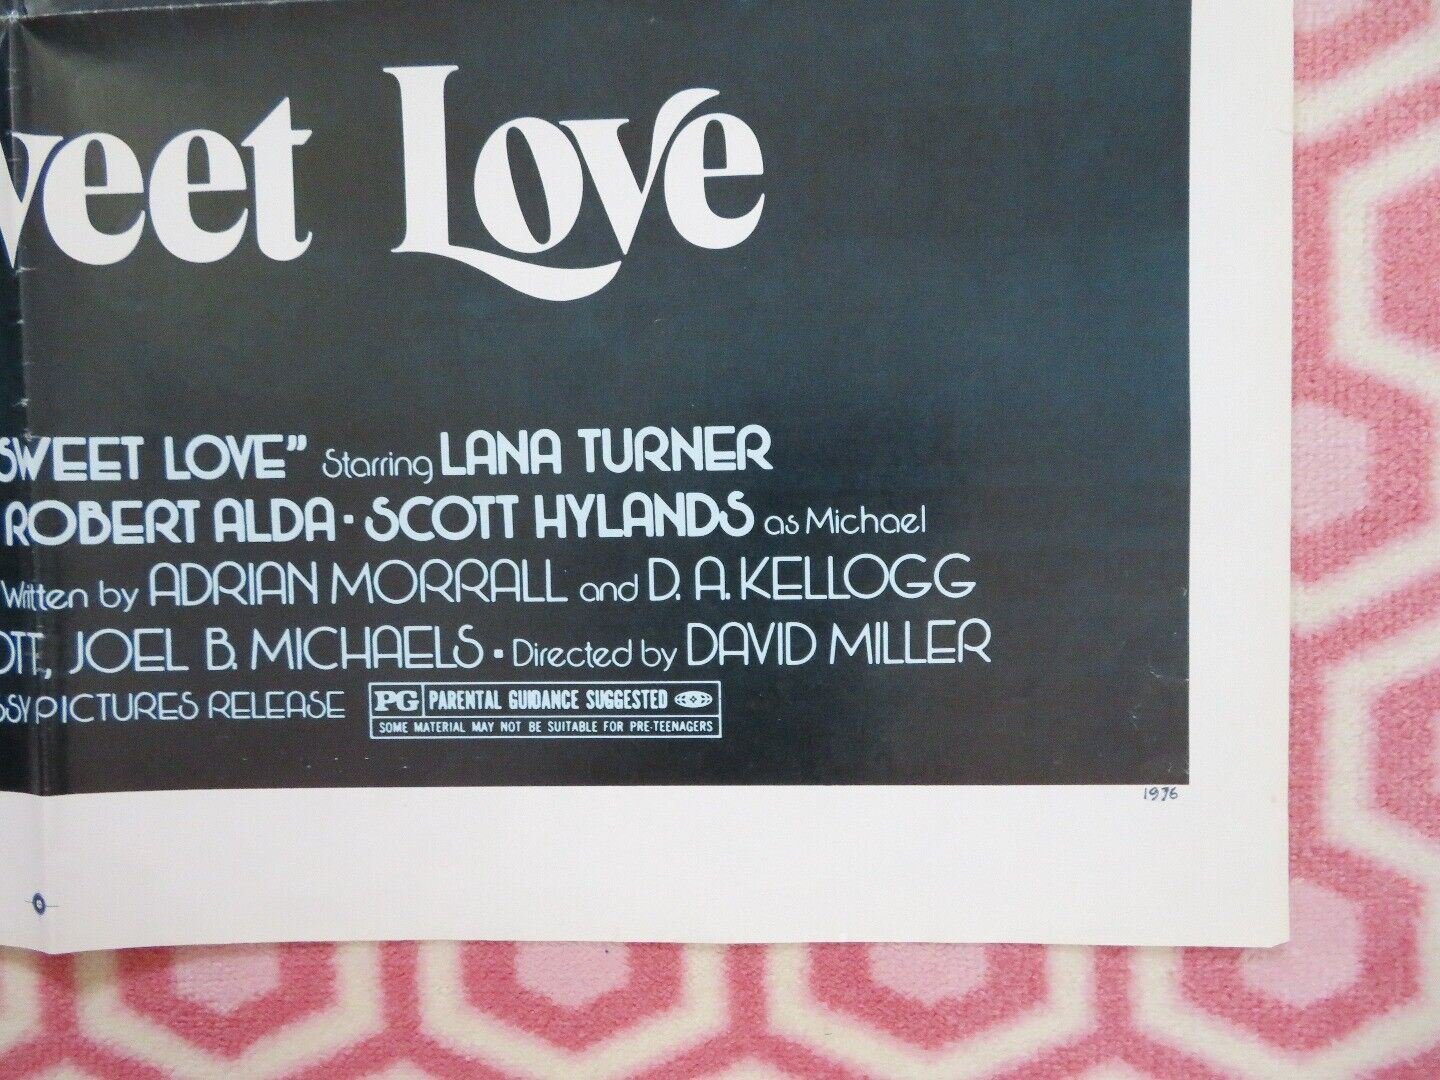 weet Love
SWEET LOVE" Starring LANA TURNER
ROBERT ALDA · SCOTT HYLANDS as Michael
Written by ADRIAN MORRALL and D. A. KELLOGG
OTT, JOEL B. MICHAELS · Directed by DAVID MILLER
SSY PICTURES RELEASE
PG PARENTAL GUIDANCE SUGGESTED
SOME MATERIAL MAY NOT BE SUITABLE FOR PRE-TEENAGERS
1976